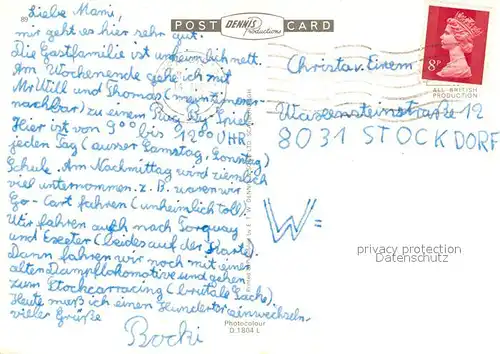 89
Liebe Mami,
mir geht es hier sehr gut.
Die Gastfamilie ist unheimlich nett.
Am Wochenende gehe ich mit
Mr Will und Thomas (mein Zimmer-
nachbar) zu einem Rug By Spiel.
Hier ist von 9⁰⁰ bis 12⁰⁰ UHR
jeden Tag (ausser Samstag, Sonntag)
Schule. Am Nachmittag wird ziemlich
viel unternommen. z. B. waren wir
Go-Cart fahren (unheimlich toll).
Wir fahren auch nach Torquay
und Exeter (beides auf der Karte).
Dann fahren wir noch mit einer
alten Dampflokomotive und gehen
zum Stockcarracing (brutale Sache).
Heute muß ich einen Hunderter einwechseln.
viele Grüße
Bocki
POST CARD
DENNIS
Productions
8P
ALL-BRITISH
PRODUCTION
Christa v. Eirem
Waxensteinstraße 12
8031 STOCKDORF
W=
privacy protection
Datenschutz
Photocolour
D.1804 L